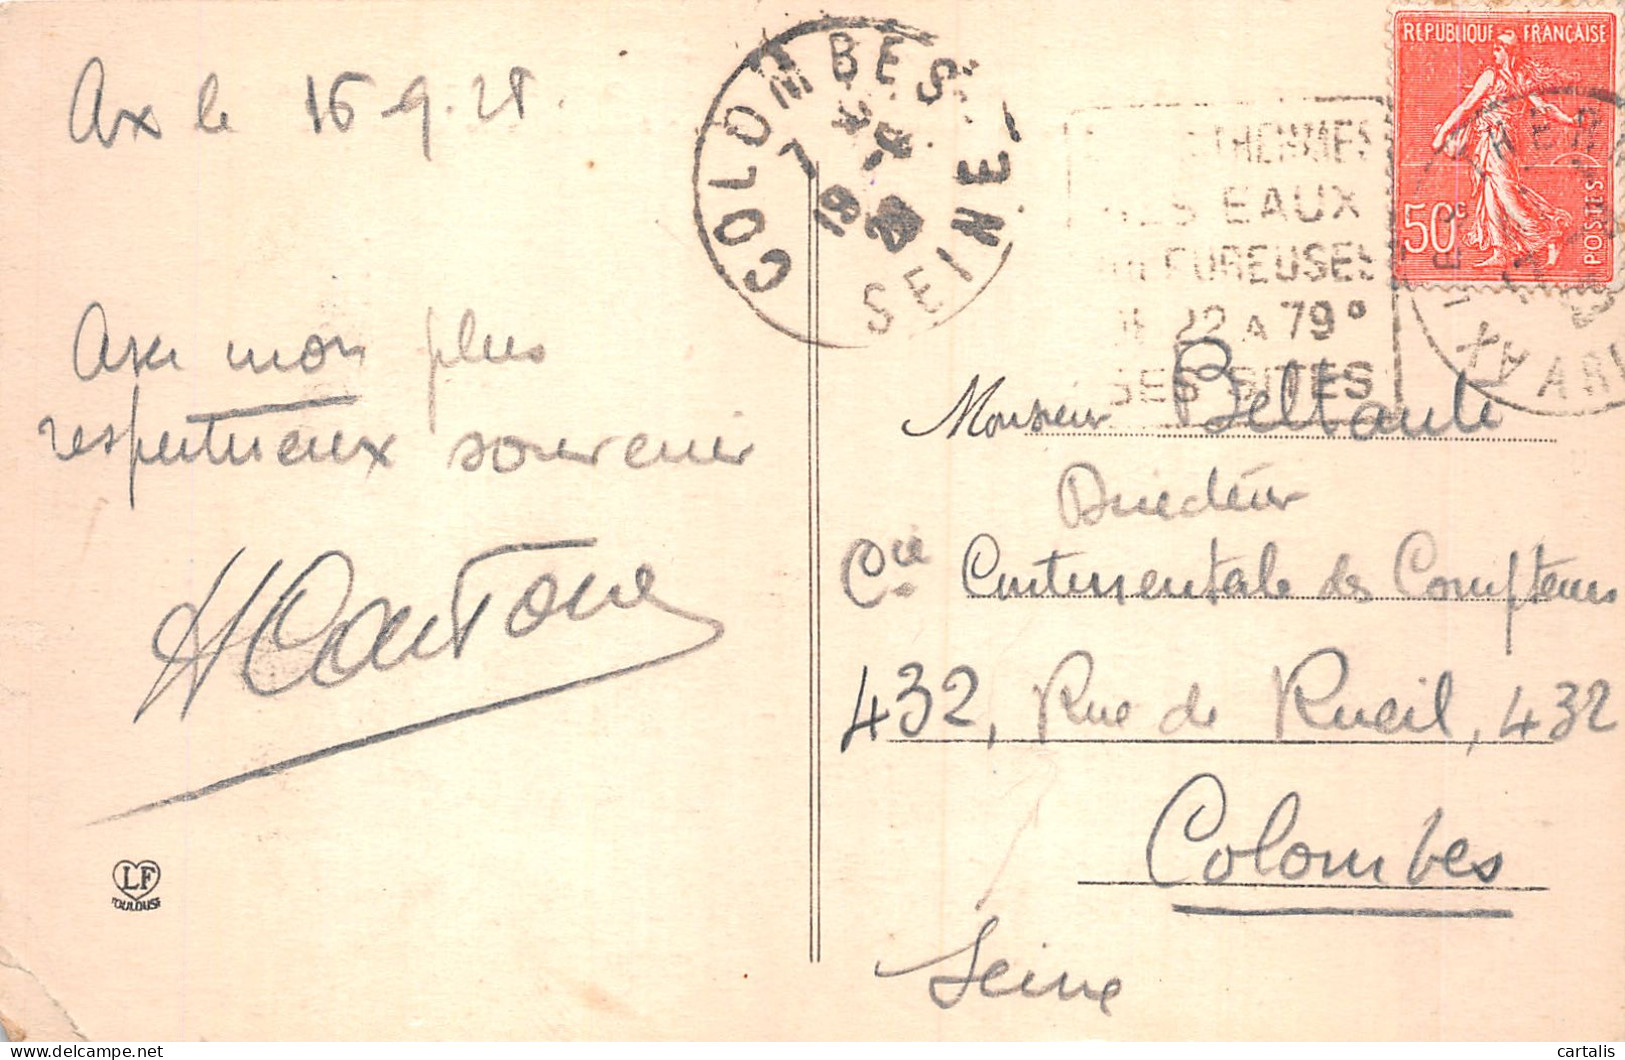 Ax le 16-9-28.
COLOMBES
SEINE
19
28
SES EAUX
SULFUREUSES
DE 22 A 79°
SES SITES
AX
REPUBLIQUE FRANÇAISE
50c
POSTES
avec mon plus
respectueux souvenir
LF
TOULOUSE
Monsieur
Directeur
Cie Continentale des Compteurs
432, Rue de Rueil, 432
Colombes
Seine
cartalis